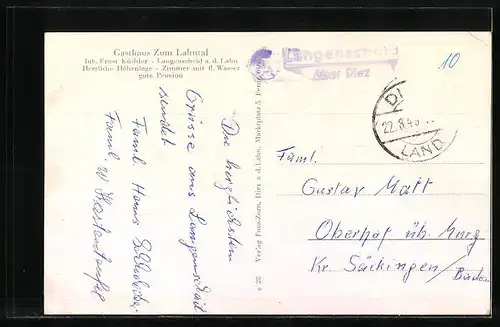 Gasthaus Zum Lahntal
Inh. Ernst Küchler - Langenscheid a. d. Lahn
Herrliche Höhenlage - Zimmer mit fl. Wasser
gute Pension
Die herzlichsten
Grüsse aus Langenscheid
sendet
Faml. Hans
Faml. W.
Verlag Foto-Zorn, Diez a. d. Lahn, Marktplatz 5
Langenscheid
über Diez
10
DI
22.8.4
LAND
Faml.
Gustav Matt
Oberhof üb. Murg
Kr. Säckingen/
Baden